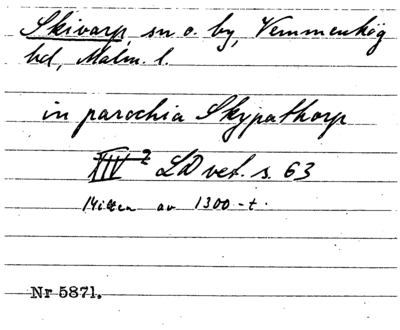 Skivarp, sn o. by, Vemmenhög
hd, Malm. l.
in parochia Skypathorp
XIV 2 LD vet. s. 63
Mitten av 1300-t.
Nr 5871.